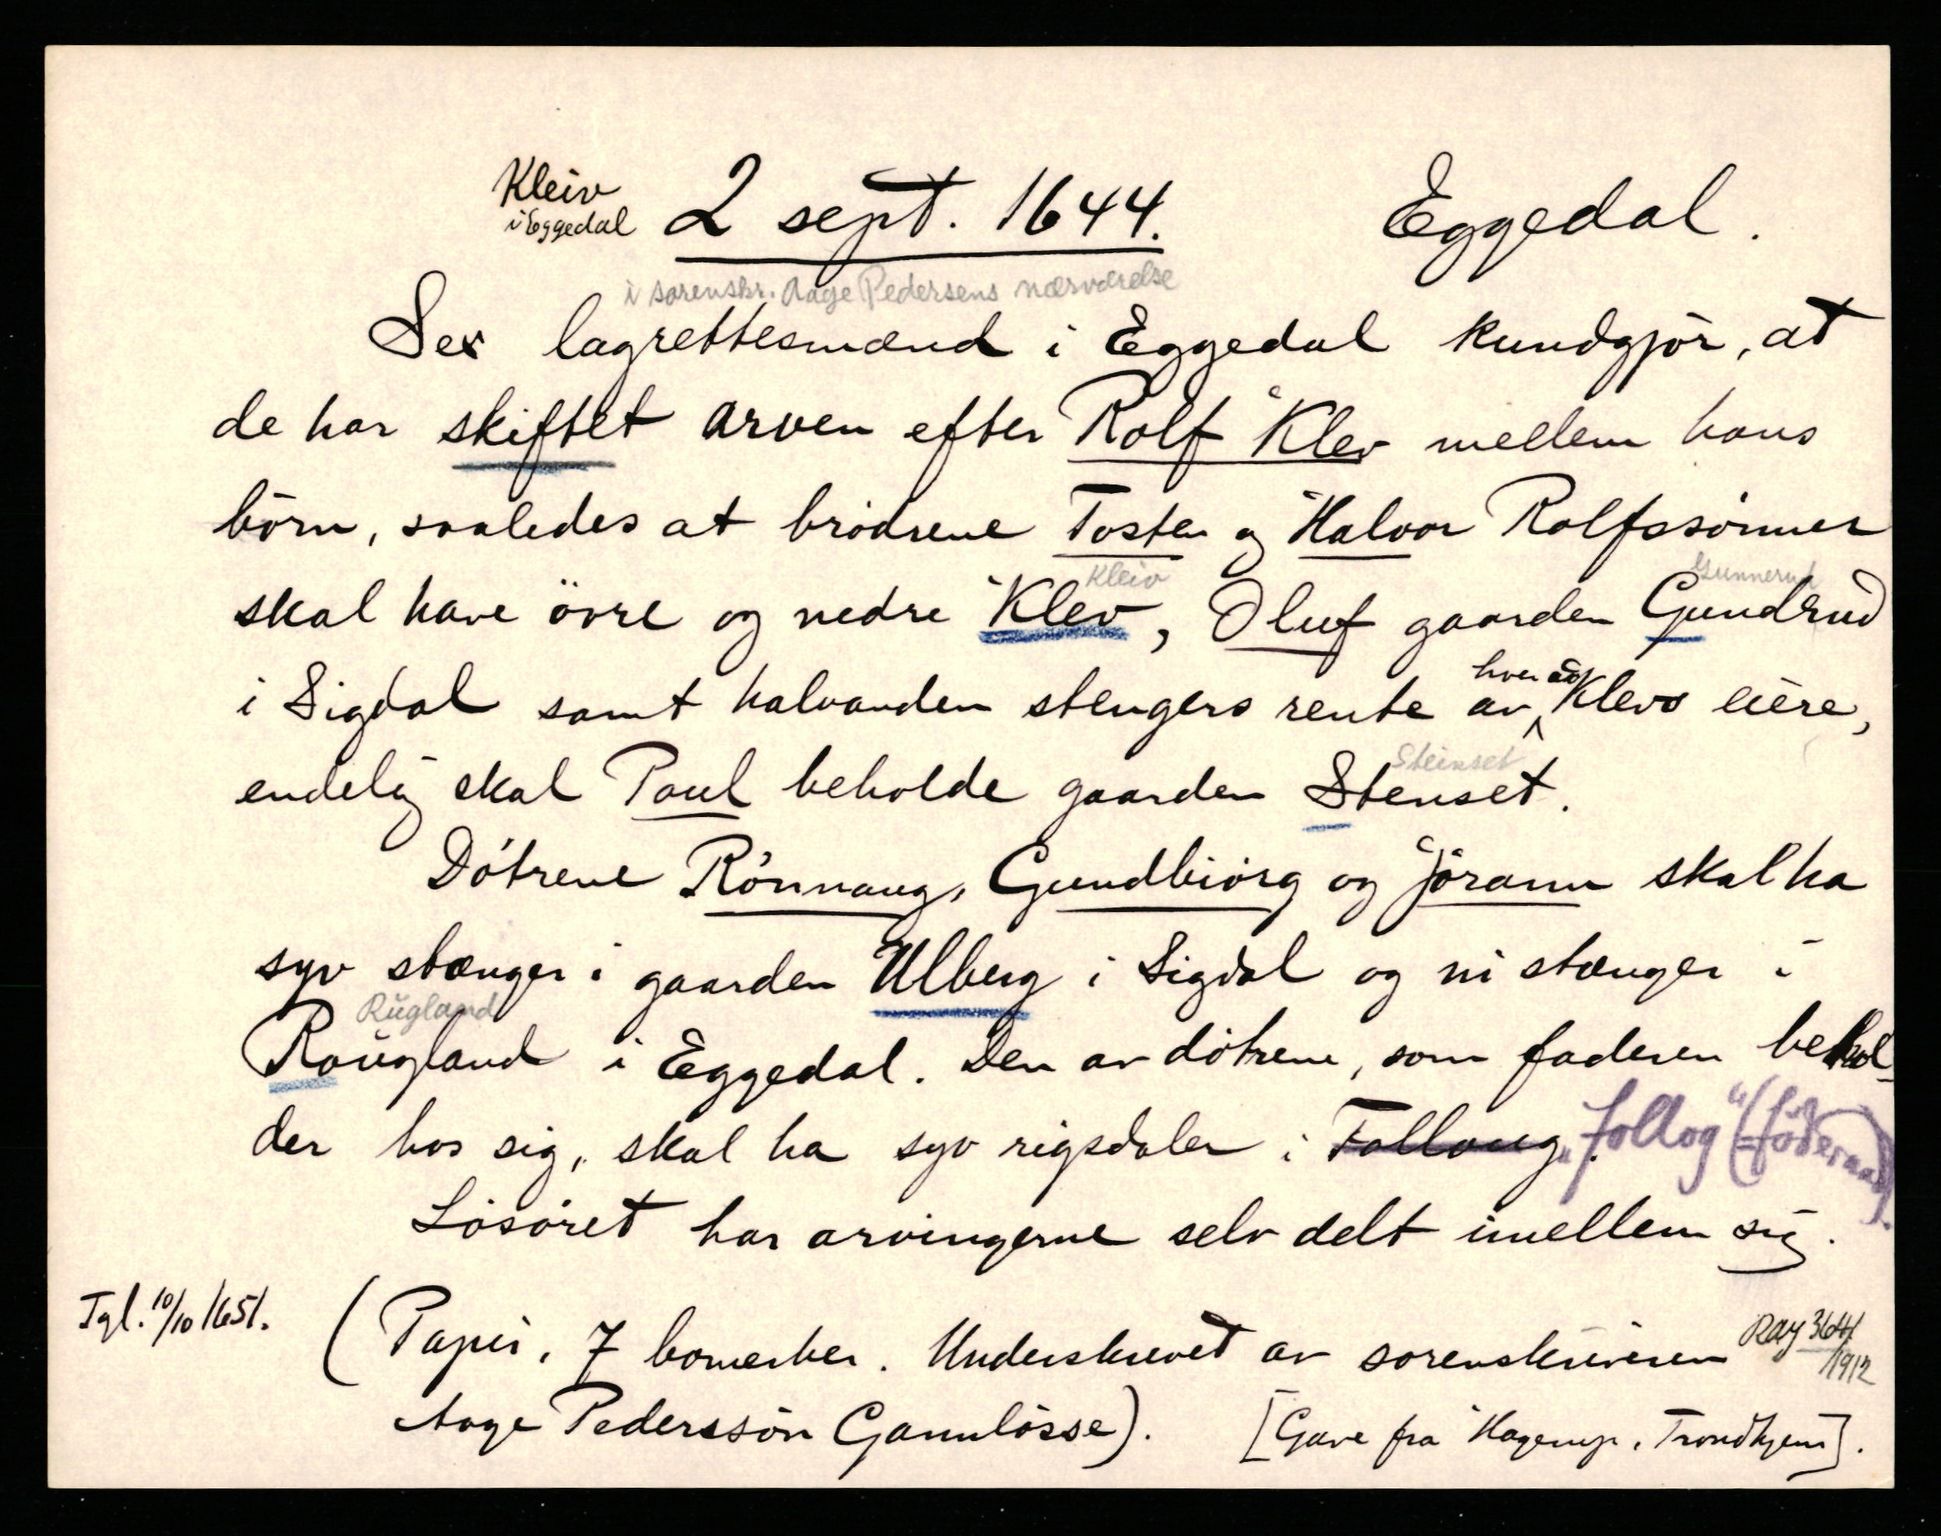 Kleiv
i Eggedal
2 sept. 1644.
Eggedal.
i sorenskr. Aage Pedersens nærværelse
Sex lagrettesmænd i Eggedal kundgjör, at
de har skiftet arven efter Rolf Klev mellem hans
börn, saaledes at brödrene Tosten og Halvor Rolfssönner
Kleiv
Gunnerud
skal have övre og nedre Klev, Oluf gaarden Gundrud
i Sigdal samt halvanden stengers rente av hver av Klevs eiere,
Steinset
endelig skal Paul beholde gaarden Stenset.
Dötrene Rönnaug, Gundbiörg og Jörann skal ha
syv stænger i gaarden Ulberg i Sigdal og ni stænger i
Rugland
Raugland i Eggedal. Den av dötrene, som faderen behol-
der hos sig, skal ha syv rigsdaler i Follaug. "follog" (föderaad).
Lösöret har arvingerne selv delt imellem sig.
Tgl. 10/10 1651.
(Papir, 7 bomerker. Underskrevet av sorenskriveren
Aage Pederssön Gamlösse).
Ray 364/1912
[Gave fra Hagerup, Trondhjem].